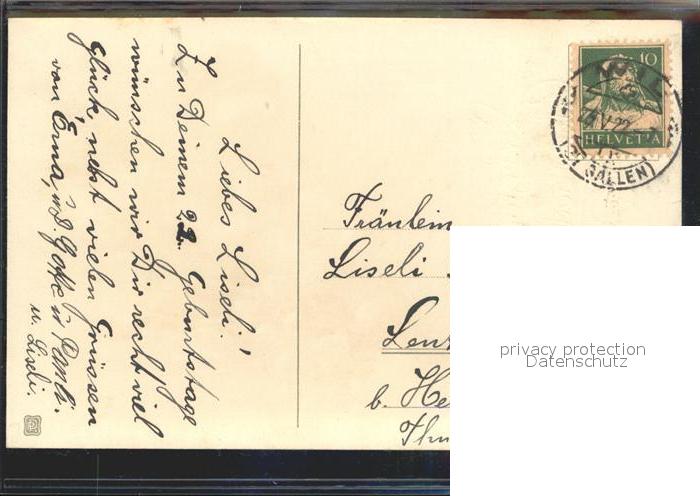 Liebes Liseli!
Zu Deinem 22. Geburtstage
wünschen wir Dir recht viel
Glück, nebst vielen Grüssen
von Erna, u.
u. Liseli.
10
HELVETIA
GALLEN)
Fräulein
Liseli
b. He
Thu
privacy protection
Datenschutz